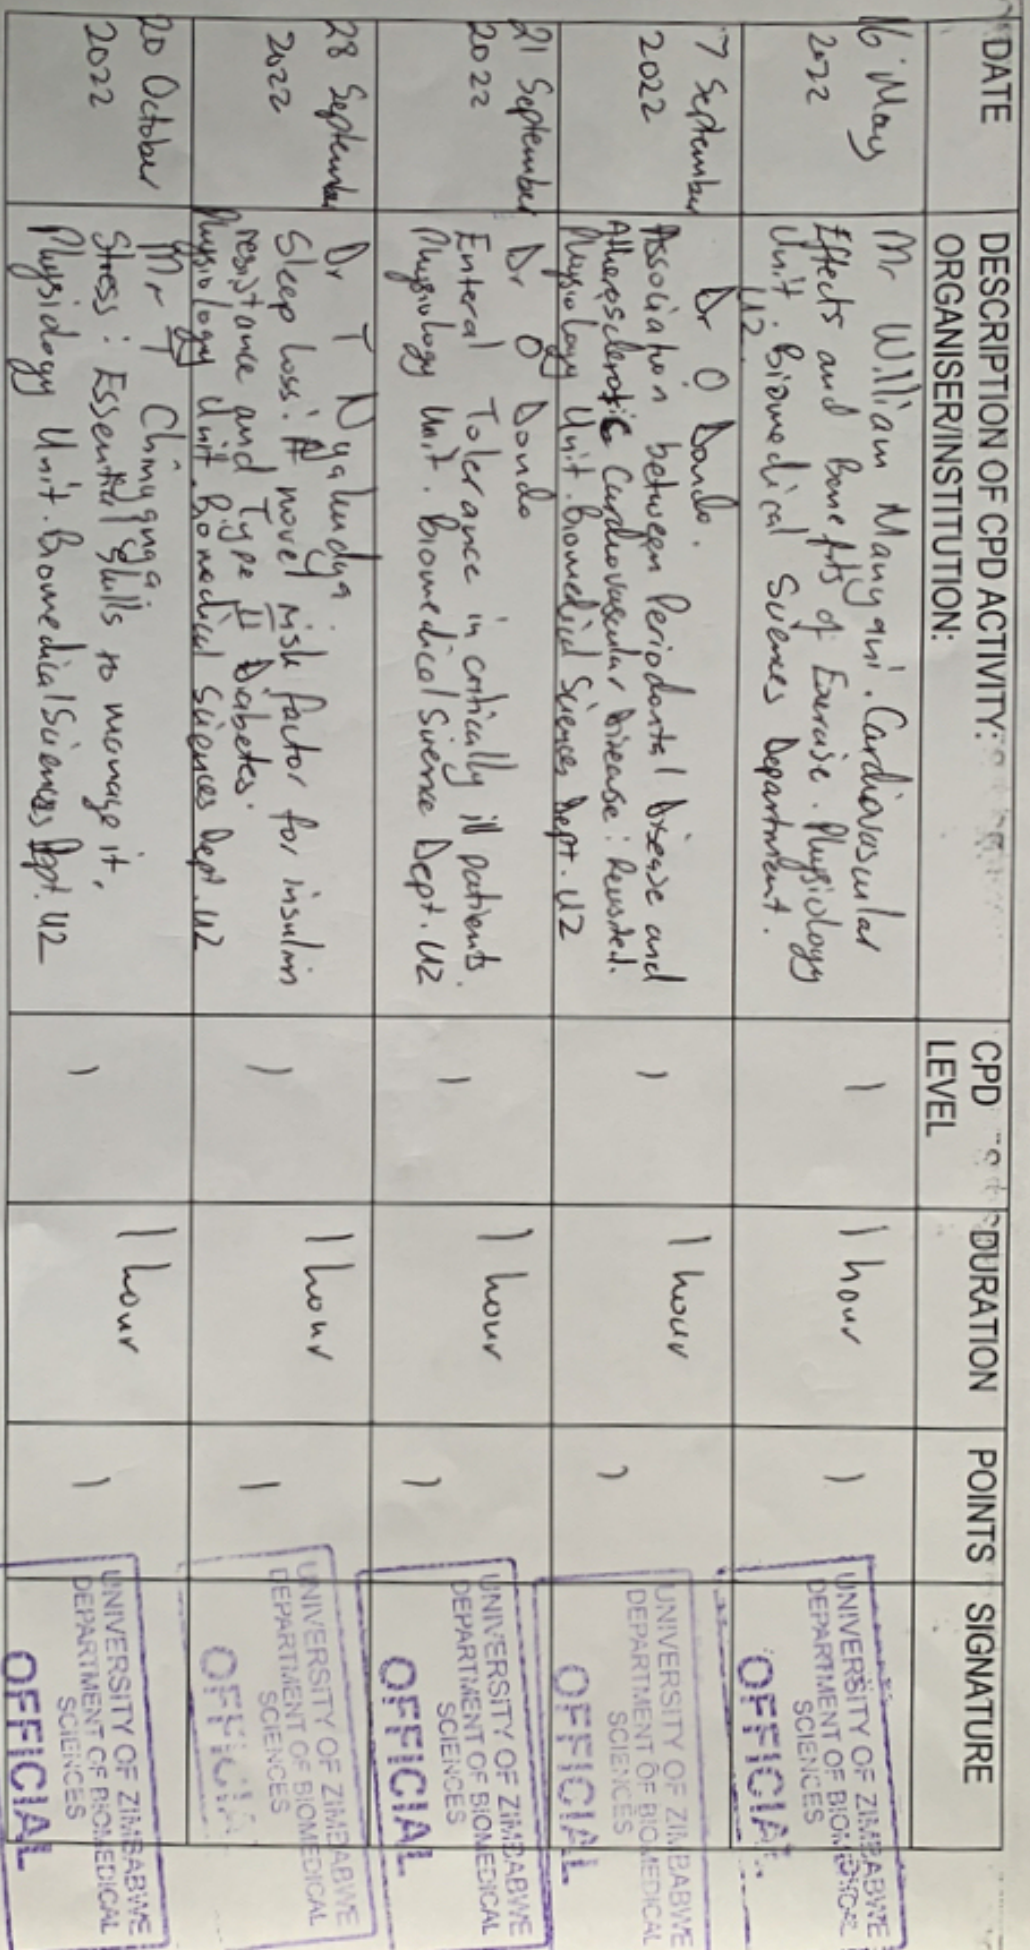 DATE
DESCRIPTION OF CPD ACTIVITY:
ORGANISER/INSTITUTION:
CPD
LEVEL
DURATION
POINTS
SIGNATURE
16 May
2022
Mr William Manyani. Cardiovascular
Effects and Benefits of Exercise. Physiology
Unit. Biomedical Sciences Department.
UZ.
1
1 hour
1
UNIVERSITY OF ZIMBABWE
DEPARTMENT OF BIOMEDICAL
SCIENCES
OFFICIAL
7 September
2022
Dr O Dondo.
Association between Periodontal Disease and
Atherosclerotic Cardiovascular Disease: Revisited.
Physiology Unit. Biomedical Sciences Dept. UZ
1
1 hour
1
UNIVERSITY OF ZIMBABWE
DEPARTMENT OF BIOMEDICAL
SCIENCES
OFFICIAL
21 September
2022
Dr O Dondo
Enteral Tolerance in critically ill patients.
Physiology Unit. Biomedical Science Dept. UZ
1
1 hour
1
UNIVERSITY OF ZIMBABWE
DEPARTMENT OF BIOMEDICAL
SCIENCES
OFFICIAL
28 September
2022
Dr T Nyakudya.
Sleep loss: A novel risk factor for insulin
resistance and Type II Diabetes.
Physiology Unit. Biomedical Sciences Dept. UZ
1
1 hour
1
UNIVERSITY OF ZIMBABWE
DEPARTMENT OF BIOMEDICAL
SCIENCES
OFFICIAL
20 October
2022
Mr T Chinyanga
Stress: Essential skills to manage it.
Physiology Unit. Biomedical Sciences Dept. UZ
1
1 hour
1
UNIVERSITY OF ZIMBABWE
DEPARTMENT OF BIOMEDICAL
SCIENCES
OFFICIAL